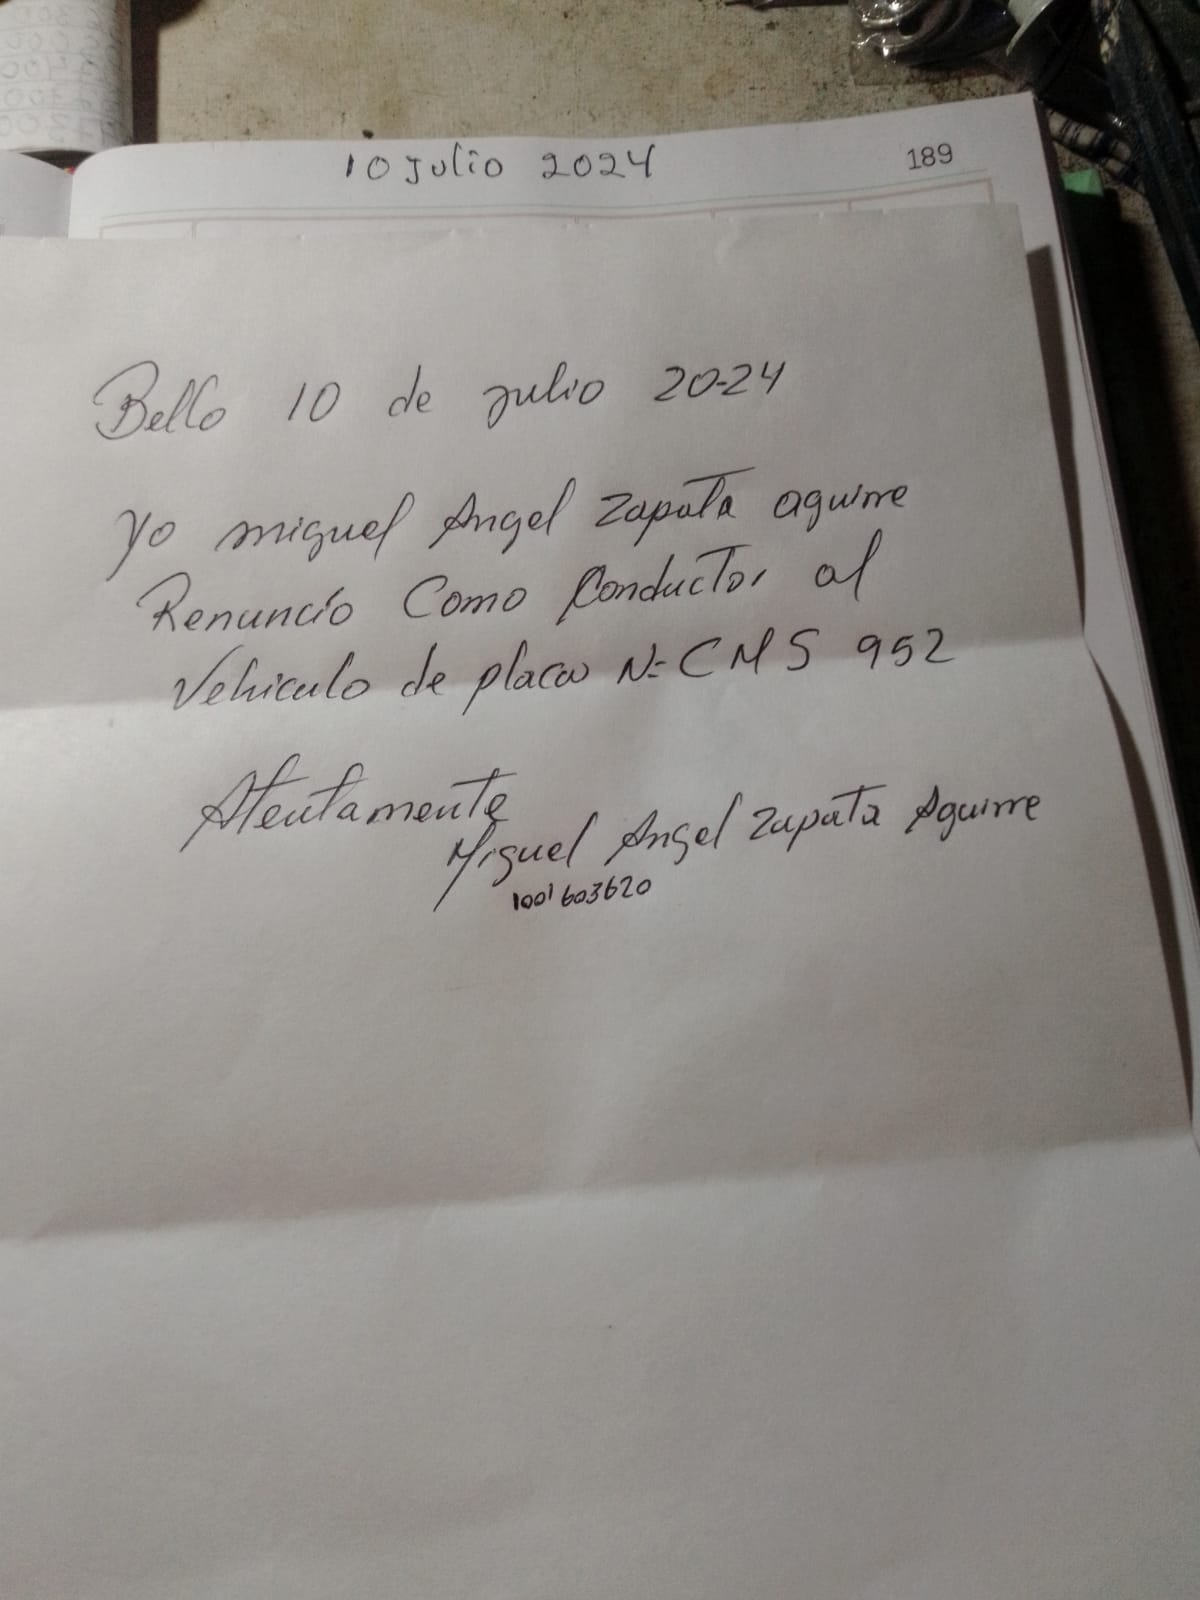 10 Julio 2024
189
Bello 10 de julio 20-24
Yo miguel Angel Zapata aguirre
Renuncio Como Conductor al
Vehiculo de placa N= CMS 952
Atentamente
Miguel Angel Zapata Aguirre
1001603620